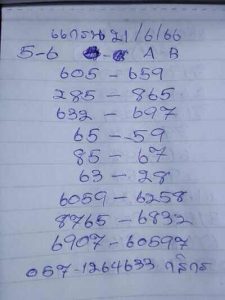 21/6/66
5-6 A B
605 - 659
285 - 865
632 - 697
65 - 59
85 - 67
63 - 28
6059 - 6258
8765 - 6832
6907 - 60597
057-1264633